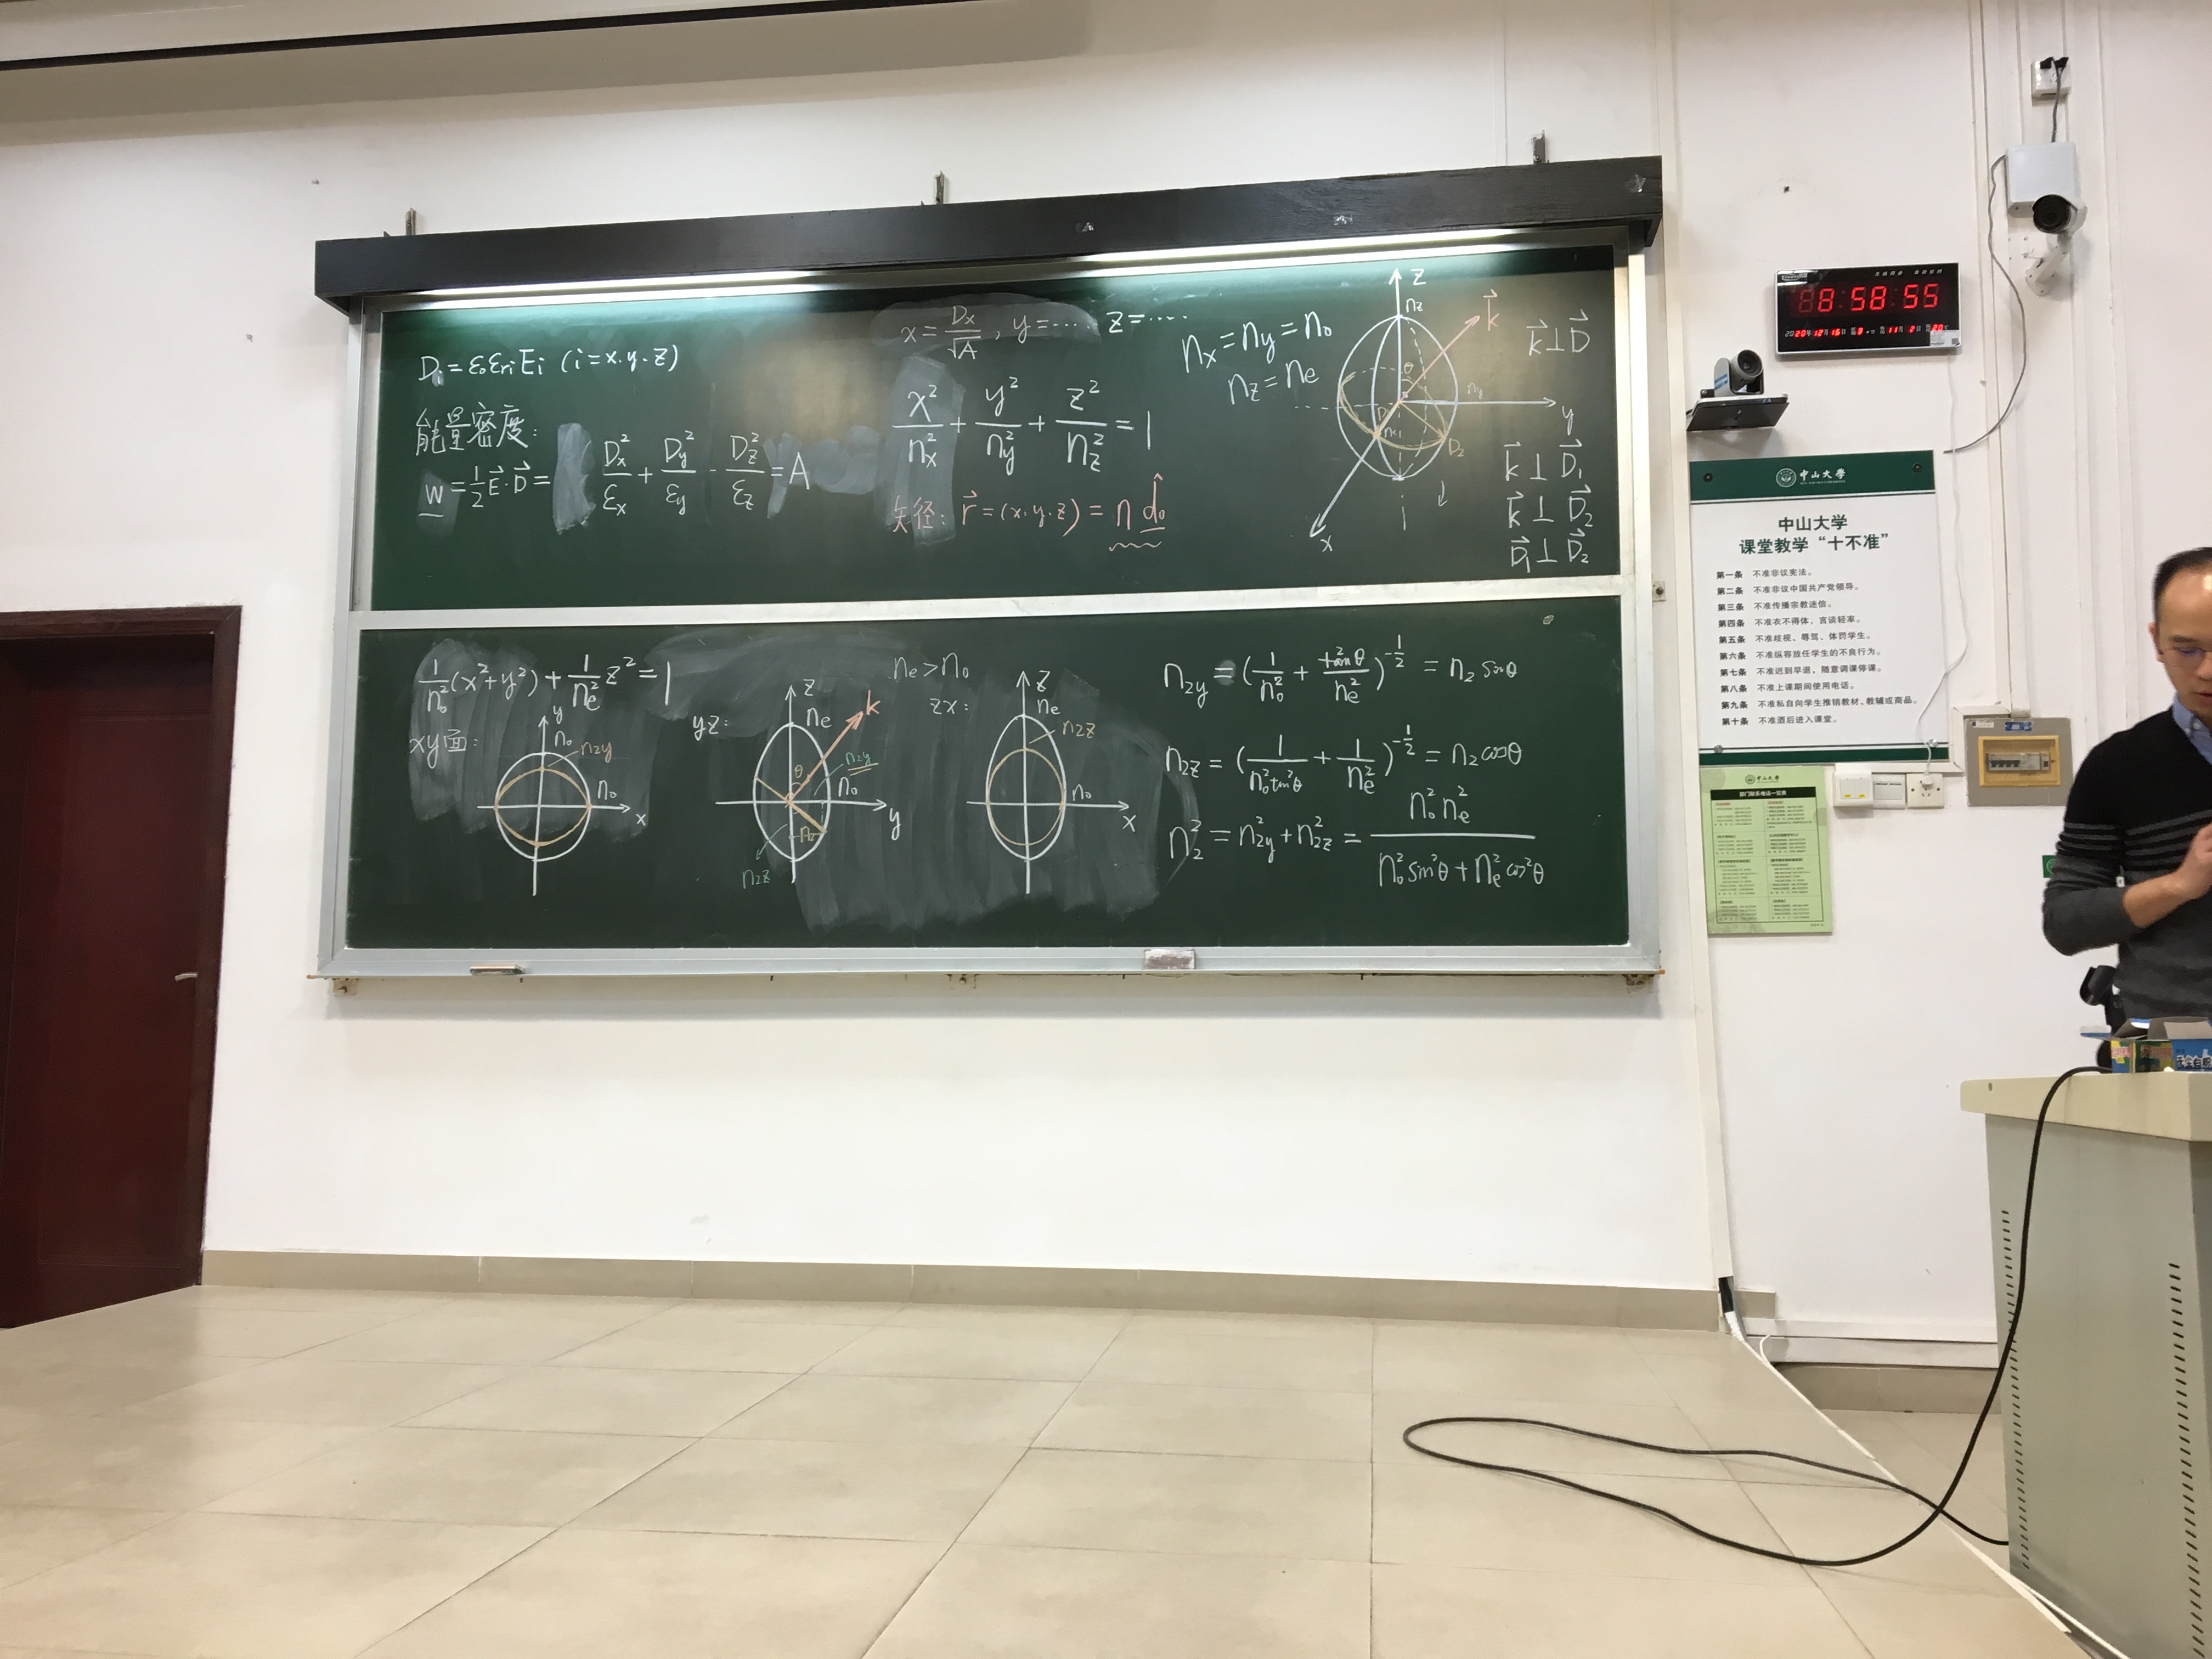 D_i = ε₀ε_ri E_i (i=x.y.z)
能量密度:
w = 1/2 E⃗·D⃗ = D_x²/ε_x + D_y²/ε_y - D_z²/ε_z = A
x = D_x/√A , y=…. z=….
x²/n_x² + y²/n_y² + z²/n_z² = 1
矢径: r⃗=(x.y.z) = n d̂₀
n_x = n_y = n₀
n_z = n_e
z
n_z
k⃗
θ
n_y
y
D₂
x
k⃗⊥D⃗
k⃗ ⊥ D⃗₁
k⃗ ⊥ D⃗₂
D⃗₁ ⊥ D⃗₂
1/n₀² (x²+y²) + 1/n_e² z² = 1
xy面:
y
n₀
n₂y
n₀
x
yz:
z
n_e
k
θ
n₂y
n₀
y
n₂
n₂z
n_e > n₀
zx:
z
n_e
n₂z
n₀
x
n₂y = (1/n₀² + tan²θ/n_e²)^(-1/2) = n₂ sinθ
n₂z = (1/(n₀²tan²θ) + 1/n_e²)^(-1/2) = n₂ cosθ
n₂² = n₂y² + n₂z² = n₀² n_e² / (n₀² sin²θ + n_e² cos²θ)
8:58:55
中山大学
中山大学
课堂教学“十不准”
第一条 不准非议宪法。
第二条 不准非议中国共产党领导。
第三条 不准传播宗教迷信。
第四条 不准衣不得体，言谈轻率。
第五条 不准歧视、辱骂、体罚学生。
第六条 不准纵容放任学生的不良行为。
第七条 不准迟到早退，随意调课停课。
第八条 不准上课期间使用电话。
第九条 不准私自向学生推销教材、教辅或商品。
第十条 不准酒后进入课堂。
中山大学